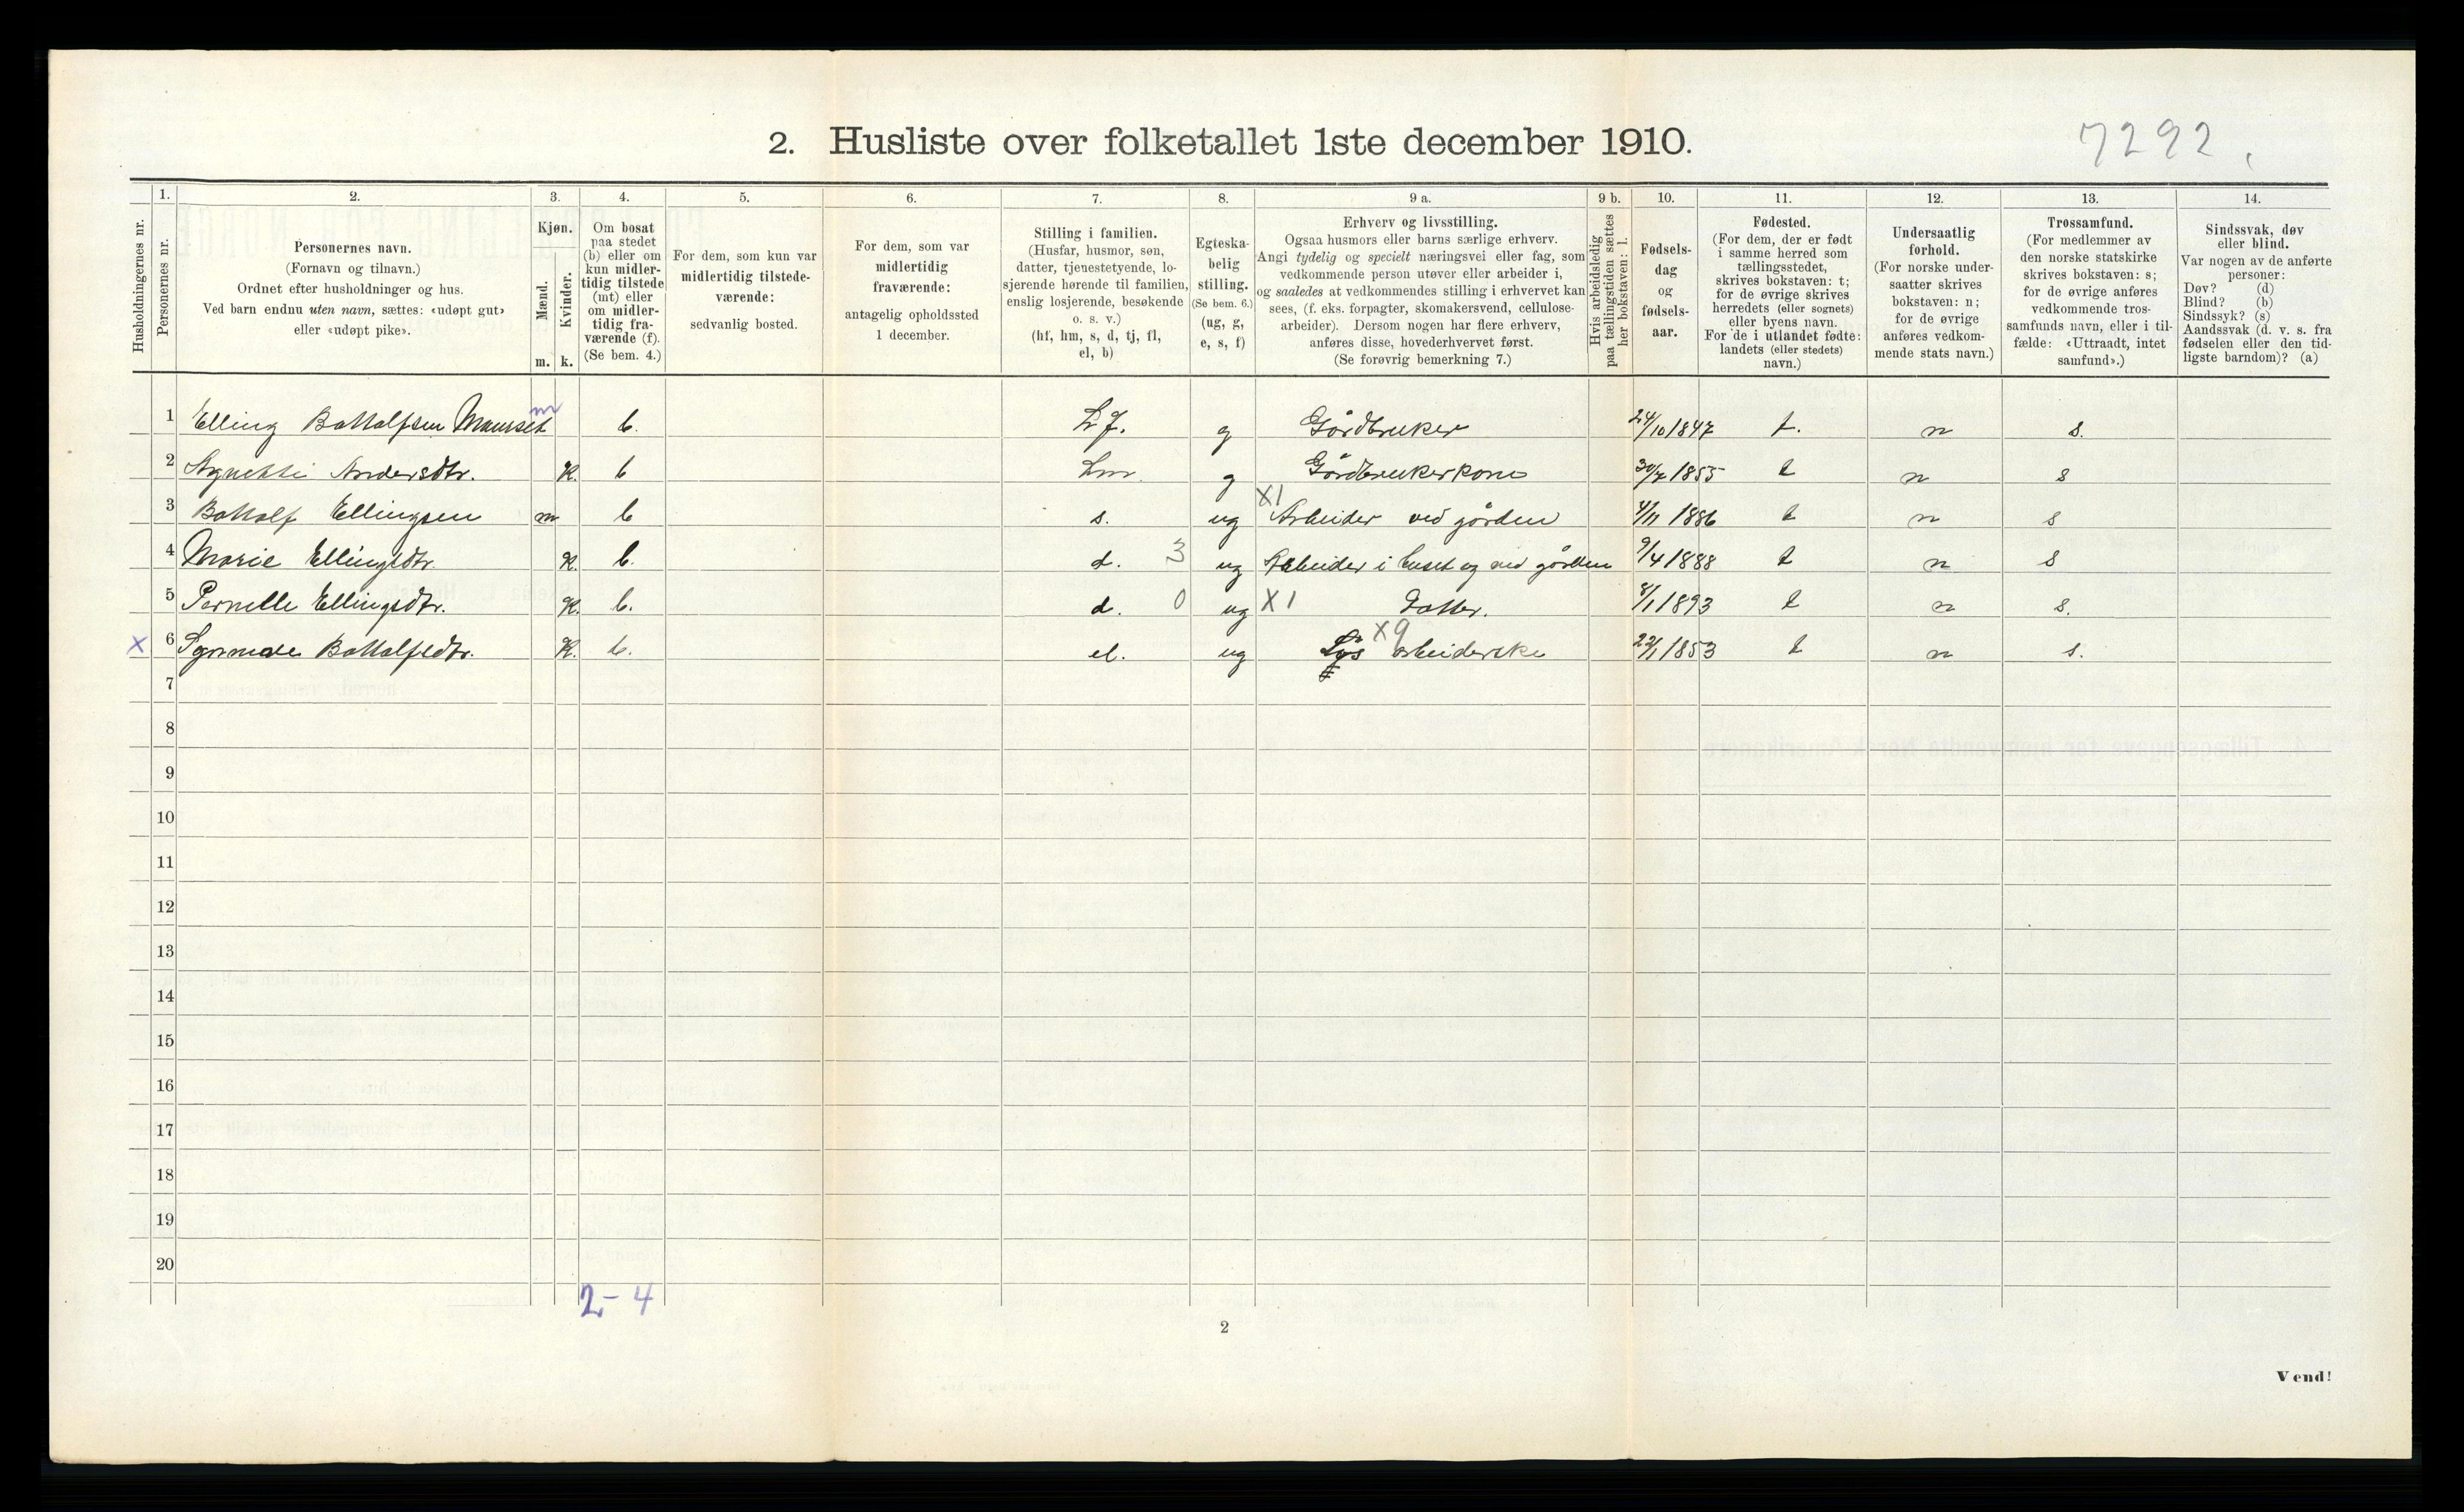 2. Husliste over folketallet 1ste december 1910.
7292.
Husholdningernes nr.
1. Personernes nr.
2. Personernes navn.
(Fornavn og tilnavn.)
Ordnet efter husholdninger og hus.
Ved barn endnu uten navn, sættes: «udøpt gut»
eller «udøpt pike».
3. Kjøn.
Mænd. m.
Kvinder. k.
4. Om bosat
paa stedet
(b) eller om
kun midler-
tidig tilstede
(mt) eller
om midler-
tidig fra-
værende (f).
(Se bem. 4.)
5. For dem, som kun var
midlertidig tilstede-
værende:
sedvanlig bosted.
6. For dem, som var
midlertidig
fraværende:
antagelig opholdssted
1 december.
7. Stilling i familien.
(Husfar, husmor, søn,
datter, tjenestetyende, lo-
sjerende hørende til familien,
enslig losjerende, besøkende
o. s. v.)
(hf, hm, s, d, tj, fl,
el, b)
8. Egteska-
belig
stilling.
(Se bem. 6.)
(ug, g,
e, s, f)
9 a. Erhverv og livsstilling.
Ogsaa husmors eller barns særlige erhverv.
Angi tydelig og specielt næringsvei eller fag, som
vedkommende person utøver eller arbeider i,
og saaledes at vedkommendes stilling i erhvervet kan
sees, (f. eks. forpagter, skomakersvend, cellulose-
arbeider). Dersom nogen har flere erhverv,
anføres disse, hovederhvervet først.
(Se forøvrig bemerkning 7.)
9 b. Hvis arbeidsledig
paa tællingstiden sættes
her bokstaven: l.
10. Fødsels-
dag
og
fødsels-
aar.
11. Fødested.
(For dem, der er født
i samme herred som
tællingsstedet,
skrives bokstaven: t;
for de øvrige skrives
herredets (eller sognets)
eller byens navn.
For de i utlandet fødte:
landets (eller stedets)
navn.)
12. Undersaatlig
forhold.
(For norske under-
saatter skrives
bokstaven: n;
for de øvrige
anføres vedkom-
mende stats navn.)
13. Trossamfund.
(For medlemmer av
den norske statskirke
skrives bokstaven: s;
for de øvrige anføres
vedkommende tros-
samfunds navn, eller i til-
fælde: «Uttraadt, intet
samfund».)
14. Sindssvak, døv
eller blind.
Var nogen av de anførte
personer:
Døv? (d)
Blind? (b)
Sindssyk? (s)
Aandssvak (d. v. s. fra
fødselen eller den tid-
ligste barndom)? (a)
1 Elling Bottolfsen m b. hf. g Gårdbruker 24/10 1847 t. n s.
2 Agnethe Andersdtr. K. b hm g Gårdbrukerkone 30/7 1855 t n s
3 Bottolf Ellingsen m b s. ug X1 Arbeider ved gården 4/11 1886 t n s
4 Marie Ellingsdtr. K. b. d. 3 ug Arbeider i huset og ved gården 9/4 1888 t n s
5 Pernille Ellingsdtr. K. b. d. 0 ug X1 Datter. 8/1 1893 t n s.
X 6 Bottolfsdtr. K. b. el. ug X9 arbeiderske 22/1 1853 t n s.
7
8
9
10
11
12
13
14
15
16
17
18
19
20
2-4
2
Vend!